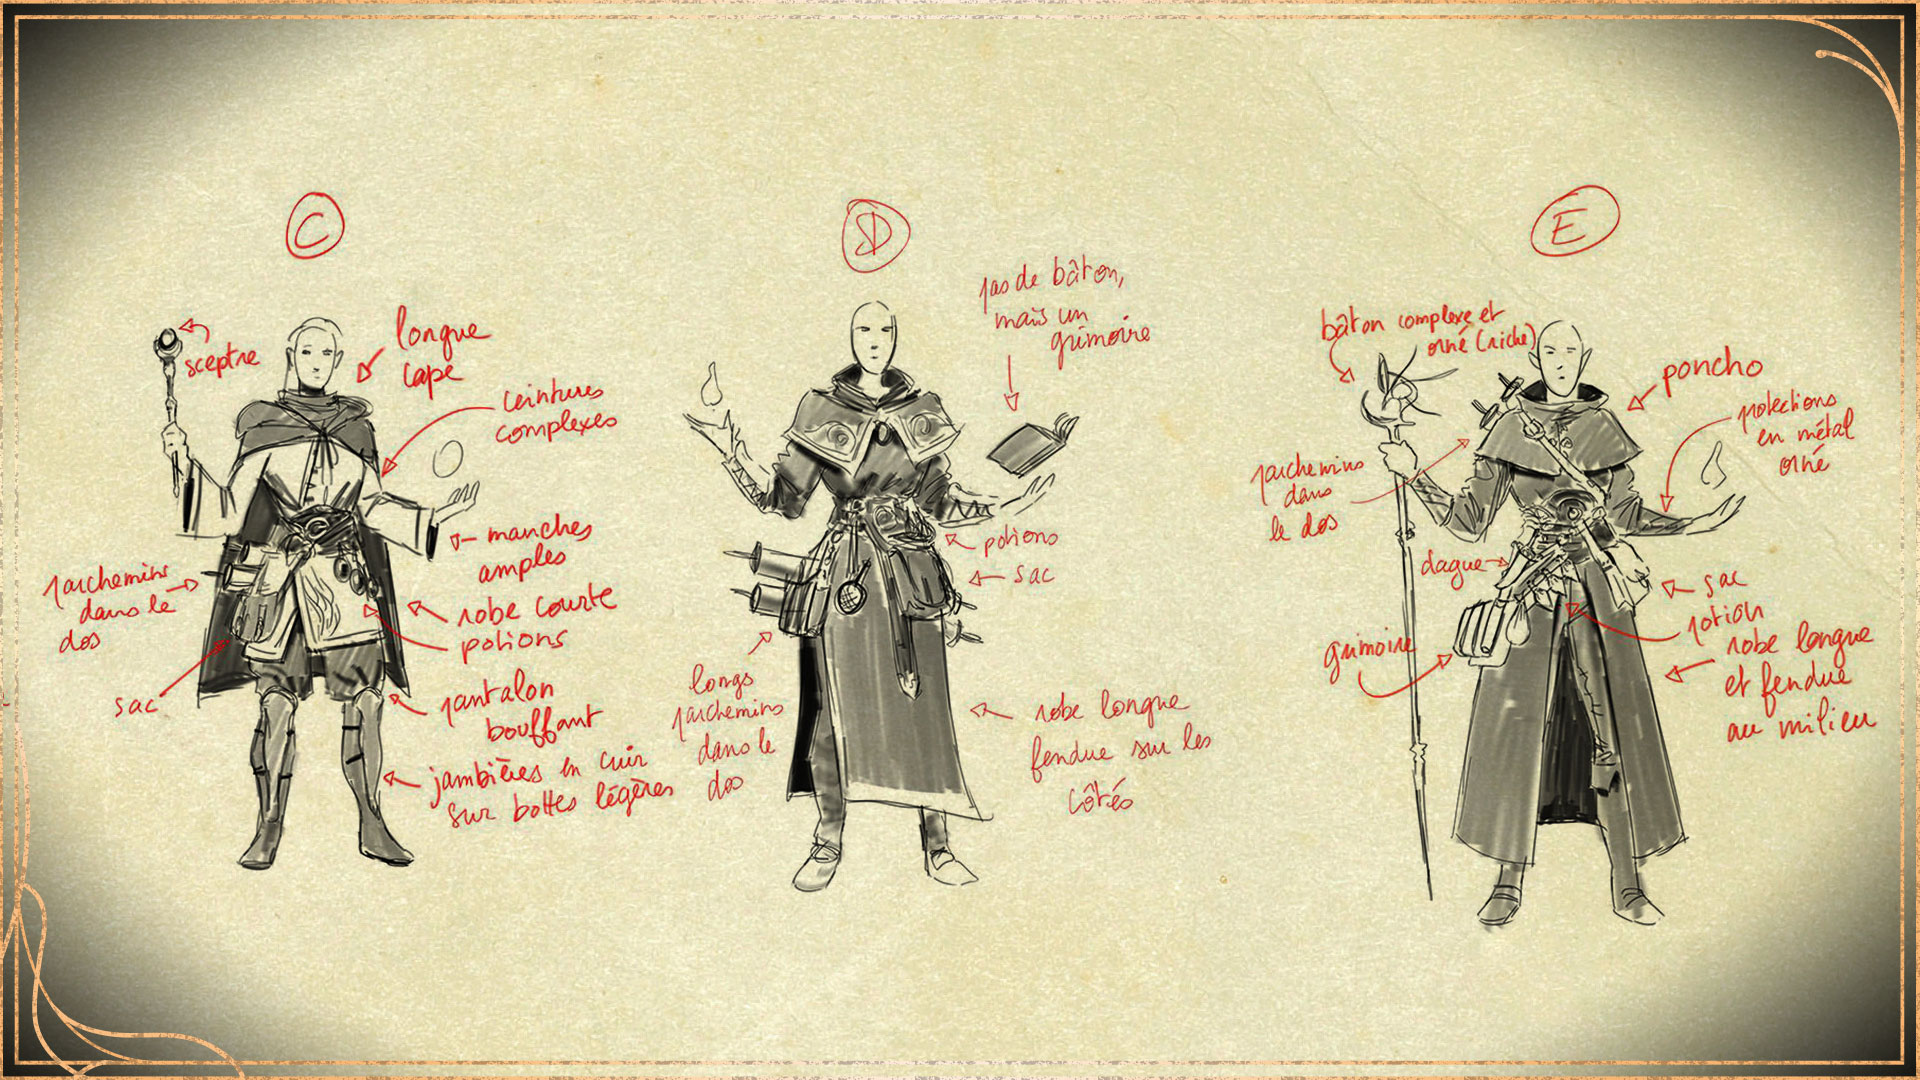 C
sceptre
longue
cape
ceintures
complexes
manches
amples
parchemins
dans le
dos
robe courte
potions
sac
pantalon
bouffant
jambières en cuir
sur bottes légères
D
pas de bâton,
mais un
grimoire
potions
sac
longs
parchemins
dans le
dos
robe longue
fendue sur les
côtés
E
bâton complexe et
orné (riche)
poncho
protections
en métal
orné
parchemins
dans
le dos
dague
sac
potion
grimoire
robe longue
et fendue
au milieu